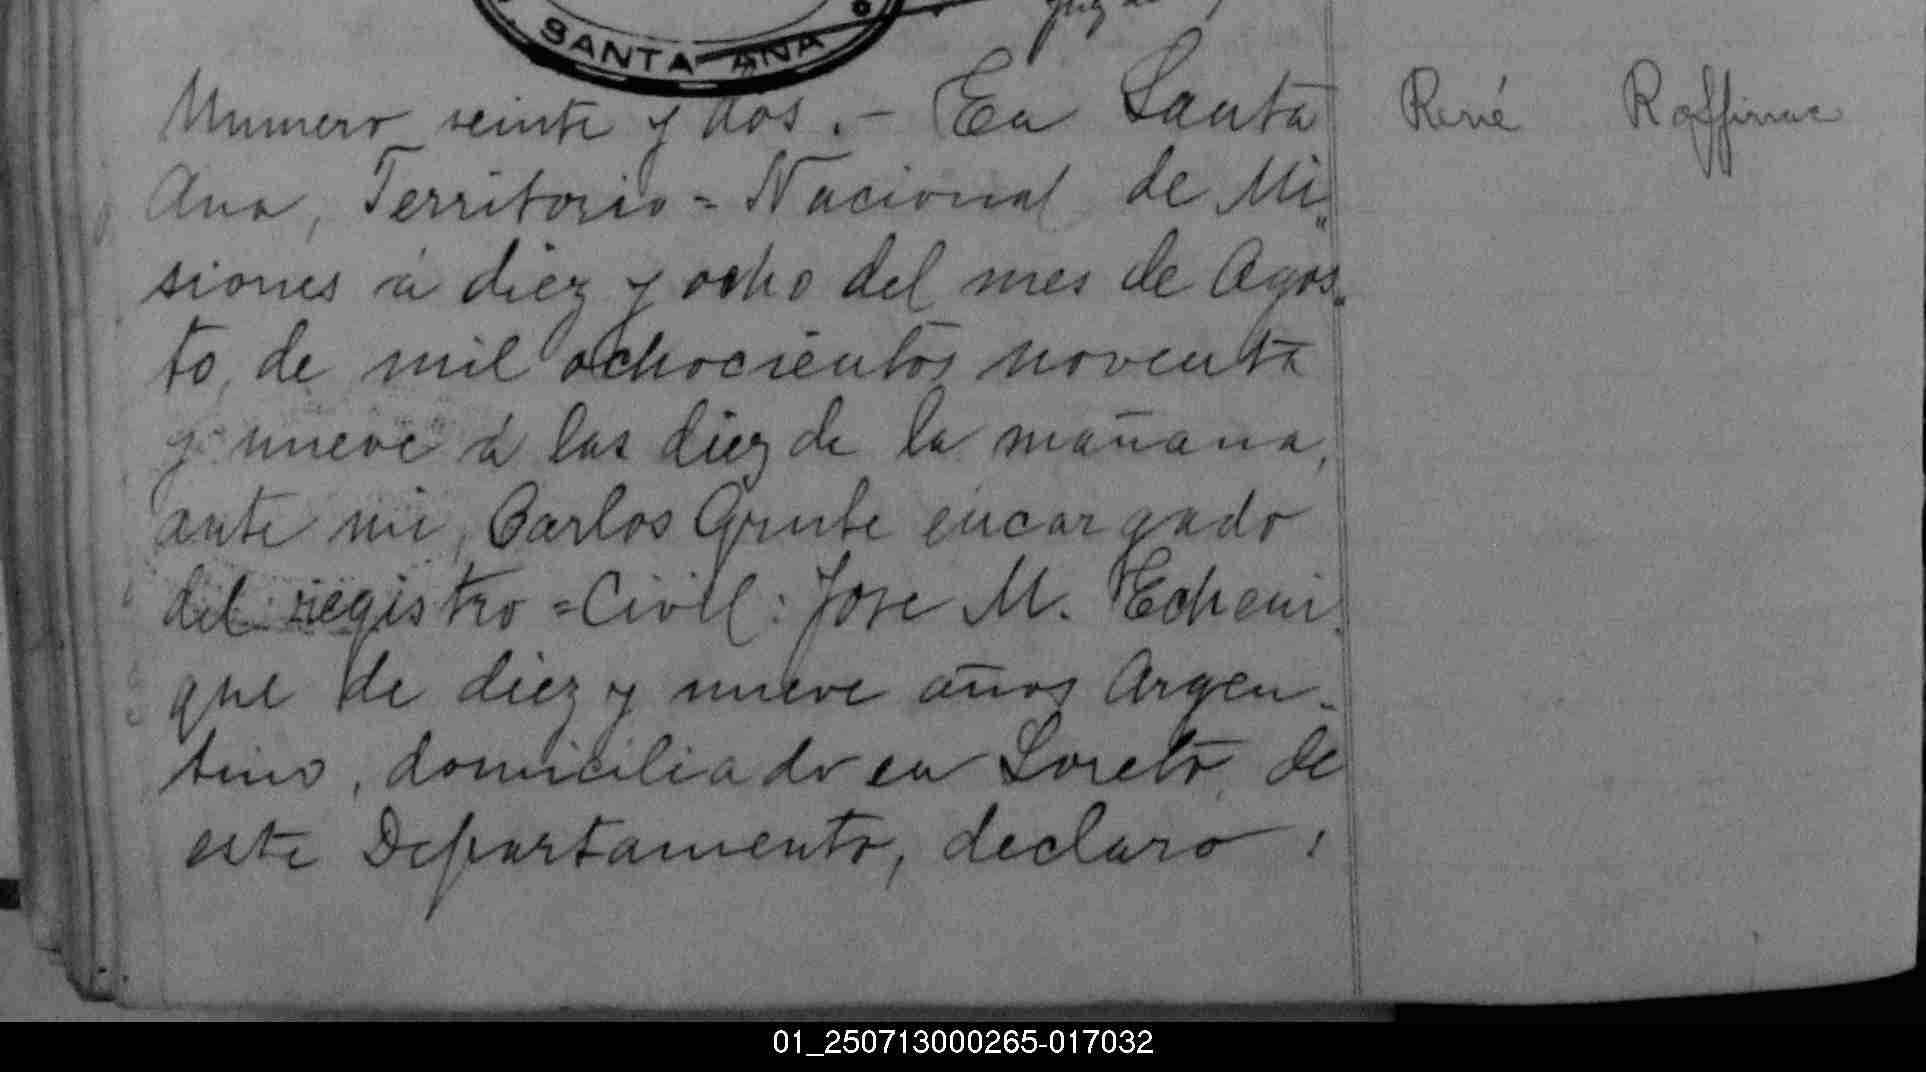 SANTA ANA
Numero veinte y dos.- En Santa
Ana, Territorio=Nacional de Mi-
siones á diez y ocho del mes de Agos-
to, de mil ochocientos noventa
y nueve á las diez de la mañana,
ante mi, Carlos Grute encargado
del registro=Civil: Jose M. Echeni-
que de diez y nueve años Argen-
tino, domiciliado en Loreto, de
este Departamento, declaro:
René Raffinac
01_250713000265-017032